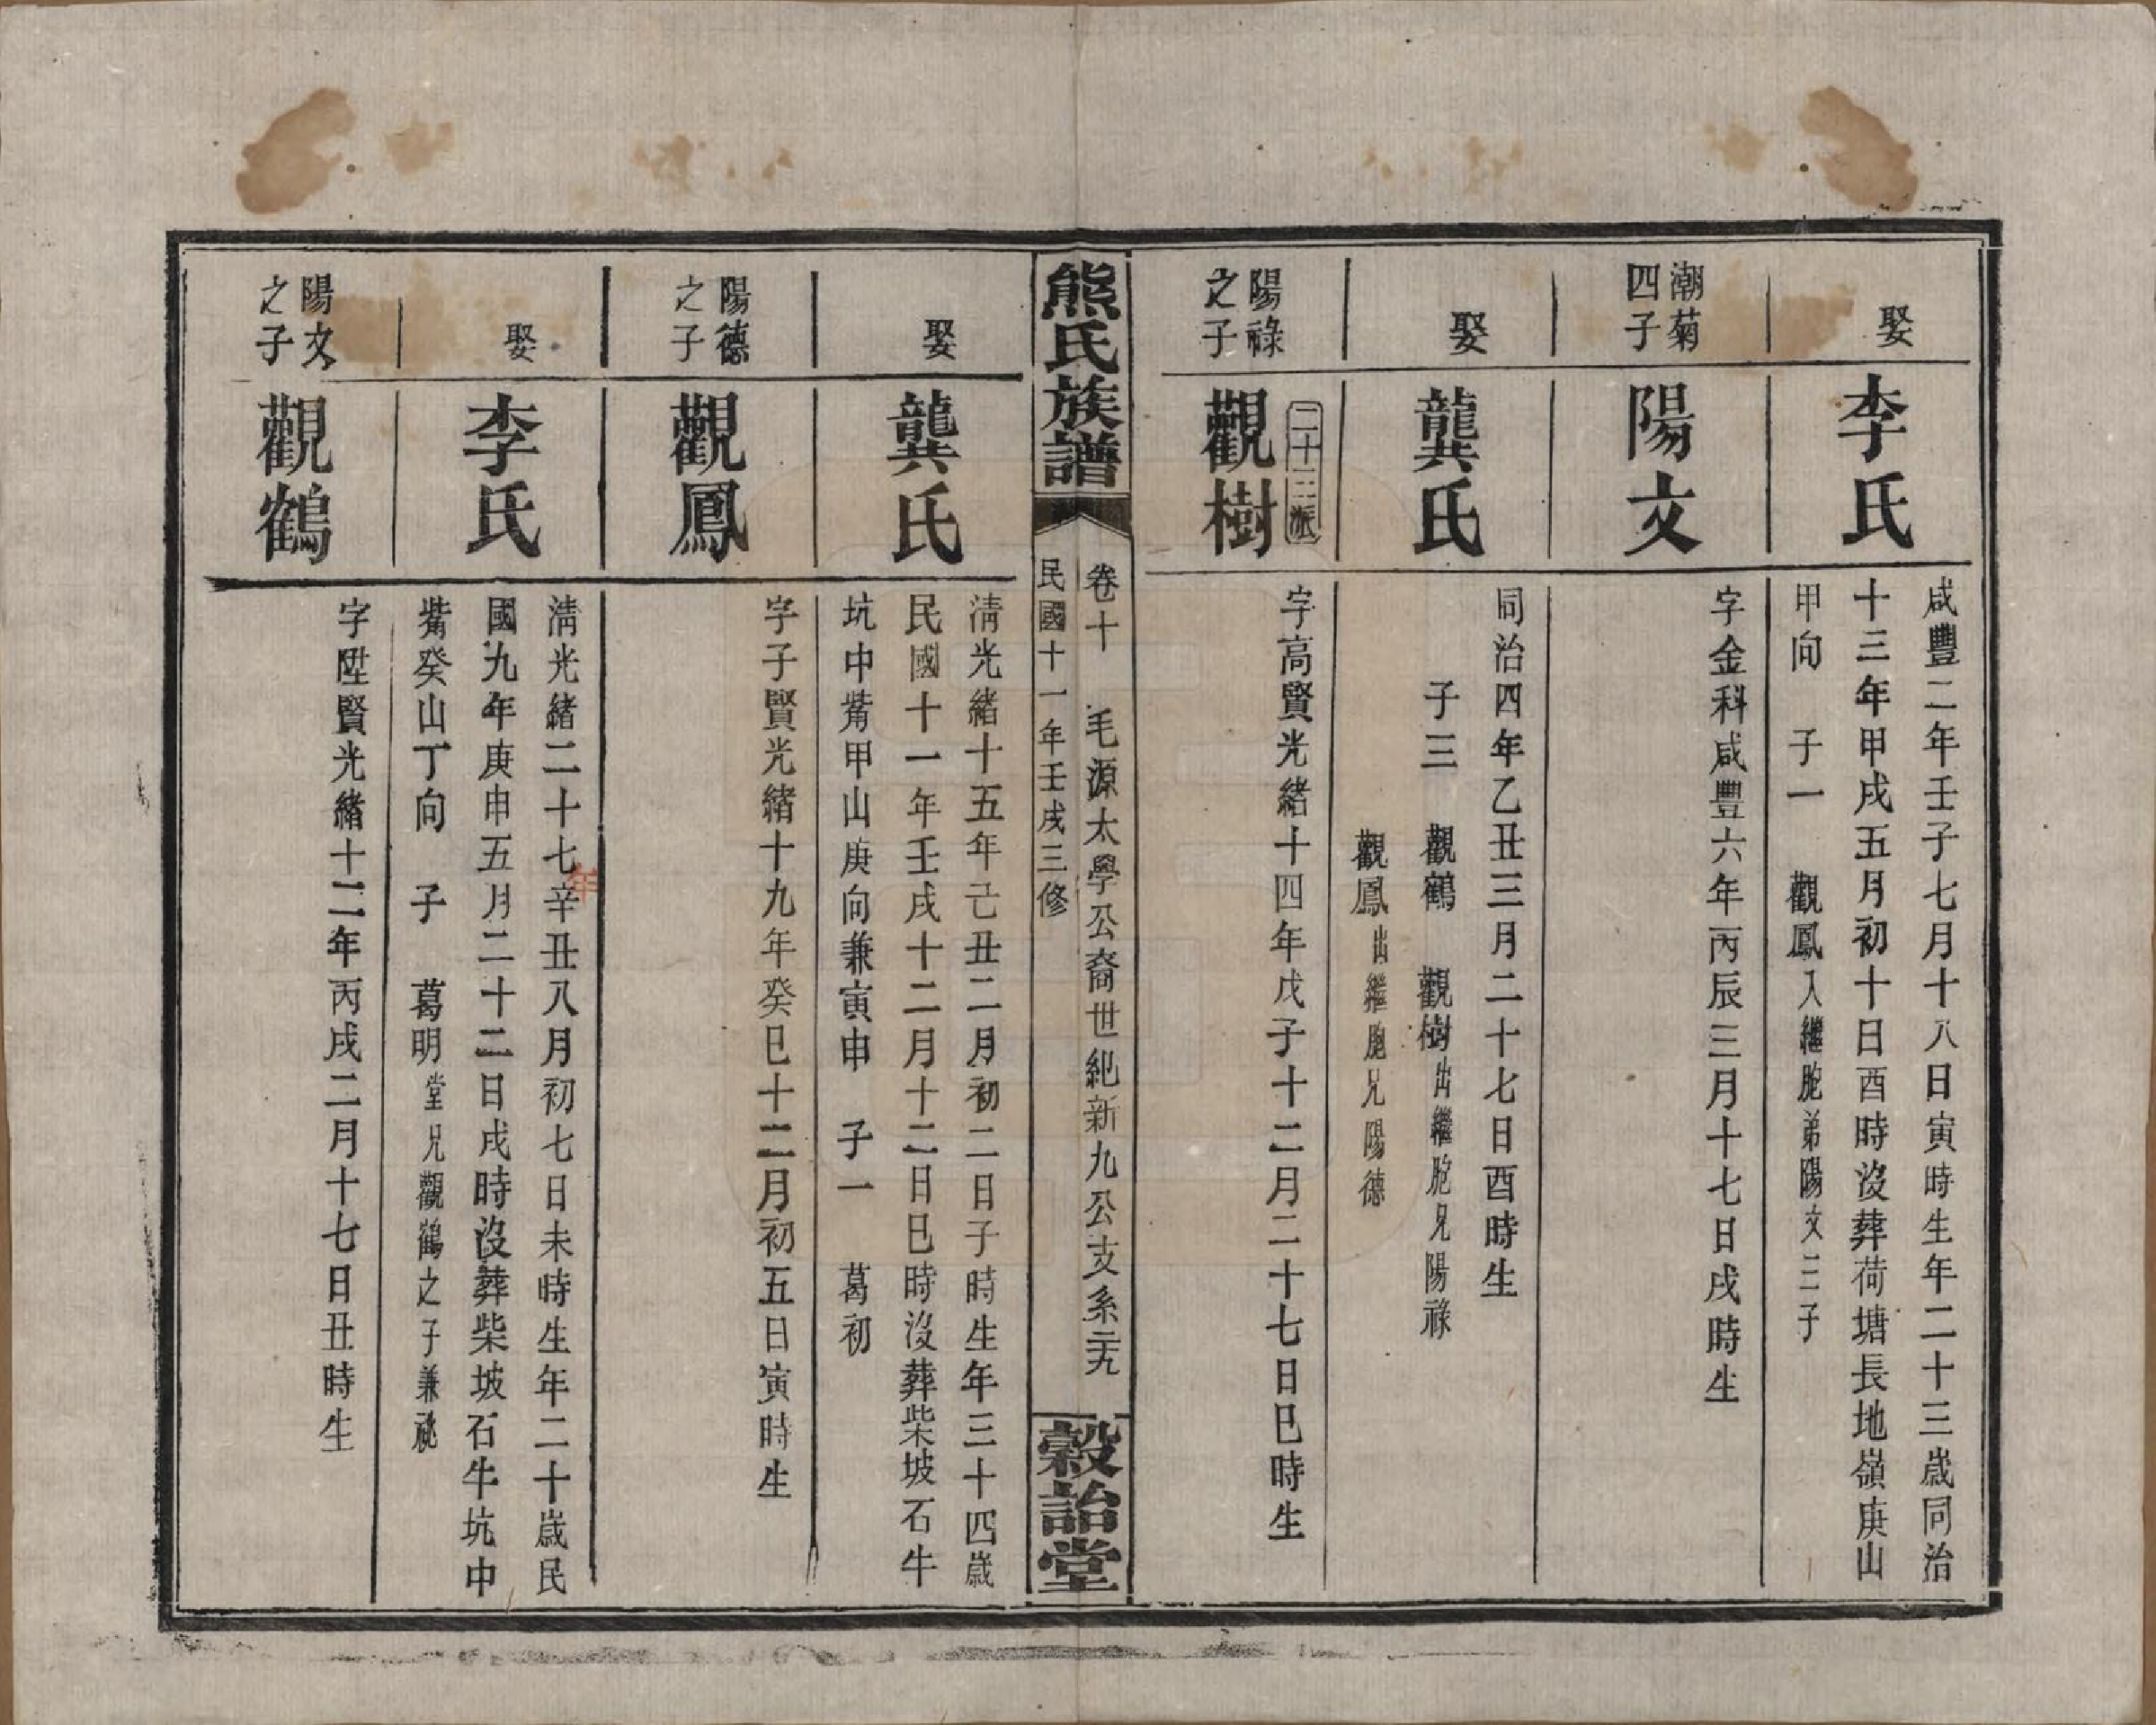 娶
李氏
咸豐二年壬子七月十八日寅時生年二十三歲同治
十三年甲戌五月初十日酉時沒葬荷塘長地嶺庚山
甲向 子一 觀鳳入繼胞弟陽文三子
潮菊
四子
陽文
字金科咸豐六年丙辰三月十七日戌時生
娶
龔氏
同治四年乙丑三月二十七日酉時生
子三 觀鶴 觀樹出繼胞兄陽祿
觀鳳出繼胞兄陽德
二十三派
陽祿
之子
觀樹
字高賢光緒十四年戊子十二月二十七日巳時生
熊氏族譜
卷十 毛源太學公裔世紀新九公支系 二十九
民國十一年壬戌三修
穀詒堂
娶
龔氏
清光緒十五年己丑二月初二日子時生年三十四歲
民國十一年壬戌十二月十二日巳時沒葬柴坡石牛
坑中觜甲山庚向兼寅申 子一 葛初
陽德
之子
觀鳳
字子賢光緒十九年癸巳十二月初五日寅時生
娶
李氏
清光緒二十七年辛丑八月初七日未時生年二十歲民
國九年庚申五月二十二日戌時沒葬柴坡石牛坑中
觜癸山丁向 子 葛明堂兄觀鶴之子兼祧
陽文
之子
觀鶴
字陞賢光緒十二年丙戌二月十七日丑時生